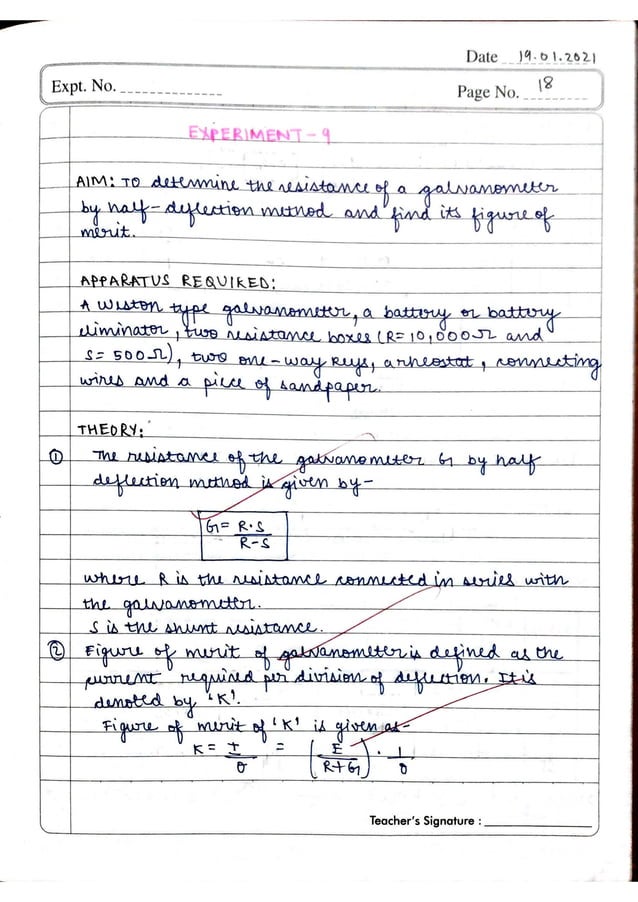 Date 19.01.2021
Expt. No.
Page No. 18
EXPERIMENT-9
AIM: TO determine the resistance of a galvanometer
by half-deflection method and find its figure of
merit.
APPARATUS REQUIRED:
A Wiston type galvanometer, a battery or battery
eliminator, two resistance boxes (R=10,000Ω and
S=500Ω), two one-way keys, a rheostat, connecting
wires and a piece of sandpaper.
THEORY:
① The resistance of the galvanometer G by half
deflection method is given by-
G = R·S / R-S
where R is the resistance connected in series with
the galvanometer.
S is the shunt resistance.
② Figure of merit of galvanometer is defined as the
current required per division of deflection. It is
denoted by 'K'.
Figure of merit of 'K' is given as-
K = I/θ = (E/R+G) · 1/θ
Teacher's Signature :